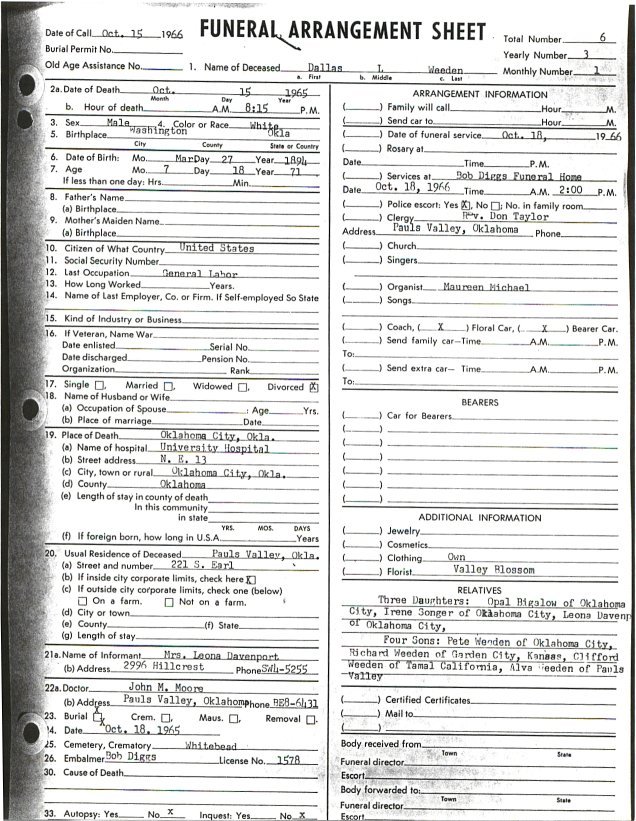 FUNERAL ARRANGEMENT SHEET
Date of Call Oct. 15 1966
Burial Permit No.
Old Age Assistance No.
1. Name of Deceased Dallas L Weeden
a. First b. Middle c. Last
Total Number 6
Yearly Number 3
Monthly Number 1
2a. Date of Death Oct. 15 1965
Month Day Year
b. Hour of death A.M. 8:15 P.M.
3. Sex Male 4. Color or Race White
5. Birthplace Washington Okla
City County State or Country
6. Date of Birth: Mo. Mar Day 27 Year 1894
7. Age Mo. 7 Day 18 Year 71
If less than one day: Hrs. Min.
8. Father's Name
(a) Birthplace
9. Mother's Maiden Name
(a) Birthplace
10. Citizen of What Country United States
11. Social Security Number
12. Last Occupation General Labor
13. How Long Worked Years.
14. Name of Last Employer, Co. or Firm. If Self-employed So State
15. Kind of Industry or Business
16. If Veteran, Name War
Date enlisted Serial No.
Date discharged Pension No.
Organization Rank
17. Single Married Widowed Divorced X
18. Name of Husband or Wife
(a) Occupation of Spouse : Age Yrs.
(b) Place of marriage Date
19. Place of Death Oklahoma City, Okla.
(a) Name of hospital University Hospital
(b) Street address N. E. 13
(c) City, town or rural Oklahoma City, Okla.
(d) County Oklahoma
(e) Length of stay in county of death
In this community
in state
YRS. MOS. DAYS
(f) If foreign born, how long in U.S.A. Years
20. Usual Residence of Deceased Pauls Valley, Okla.
(a) Street and number 221 S. Earl
(b) If inside city corporate limits, check here X
(c) If outside city corporate limits, check one (below)
On a farm. Not on a farm.
(d) City or town
(e) County (f) State
(g) Length of stay
21a. Name of Informant Mrs. Leona Davenport
(b) Address 2996 Hillcrest Phone SW4-5255
22a. Doctor John M. Moore
(b) Address Pauls Valley, Oklahoma Phone BE8-6431
23. Burial X Crem. Maus. Removal
24. Date Oct. 18. 1965
25. Cemetery, Crematory Whitebead
26. Embalmer Bob Diggs License No. 1578
30. Cause of Death
33. Autopsy: Yes No X Inquest: Yes No X
ARRANGEMENT INFORMATION
( ) Family will call Hour M.
( ) Send car to Hour M.
( ) Date of funeral service Oct. 18, 1966
( ) Rosary at
Date Time P.M.
( ) Services at Bob Diggs Funeral Home
Date Oct. 18, 1966 Time A.M. 2:00 P.M.
( ) Police escort: Yes X, No ; No. in family room
( ) Clergy Rev. Don Taylor
Address Pauls Valley, Oklahoma Phone
( ) Church
( ) Singers
( ) Organist Maureen Michael
( ) Songs
( ) Coach, ( X ) Floral Car, ( X ) Bearer Car.
( ) Send family car—Time A.M. P.M.
To:
( ) Send extra car— Time A.M. P.M.
To:
BEARERS
( ) Car for Bearers
( )
( )
( )
( )
( )
( )
ADDITIONAL INFORMATION
( ) Jewelry
( ) Cosmetics
( ) Clothing Own
( ) Florist Valley Blossom
RELATIVES
Three Daughters: Opal Bigalow of Oklahoma
City, Irene Songer of Oklahoma City, Leona Davenp
of Oklahoma City,
Four Sons: Pete Weeden of Oklahoma City,
Richard Weeden of Garden City, Kansas, Clifford
Weeden of Tamal California, Alva Weeden of Pauls
Valley
( ) Certified Certificates
( ) Mail to
( )
Body received from
Town State
Funeral director
Escort
Body forwarded to:
Town State
Funeral director
Escort